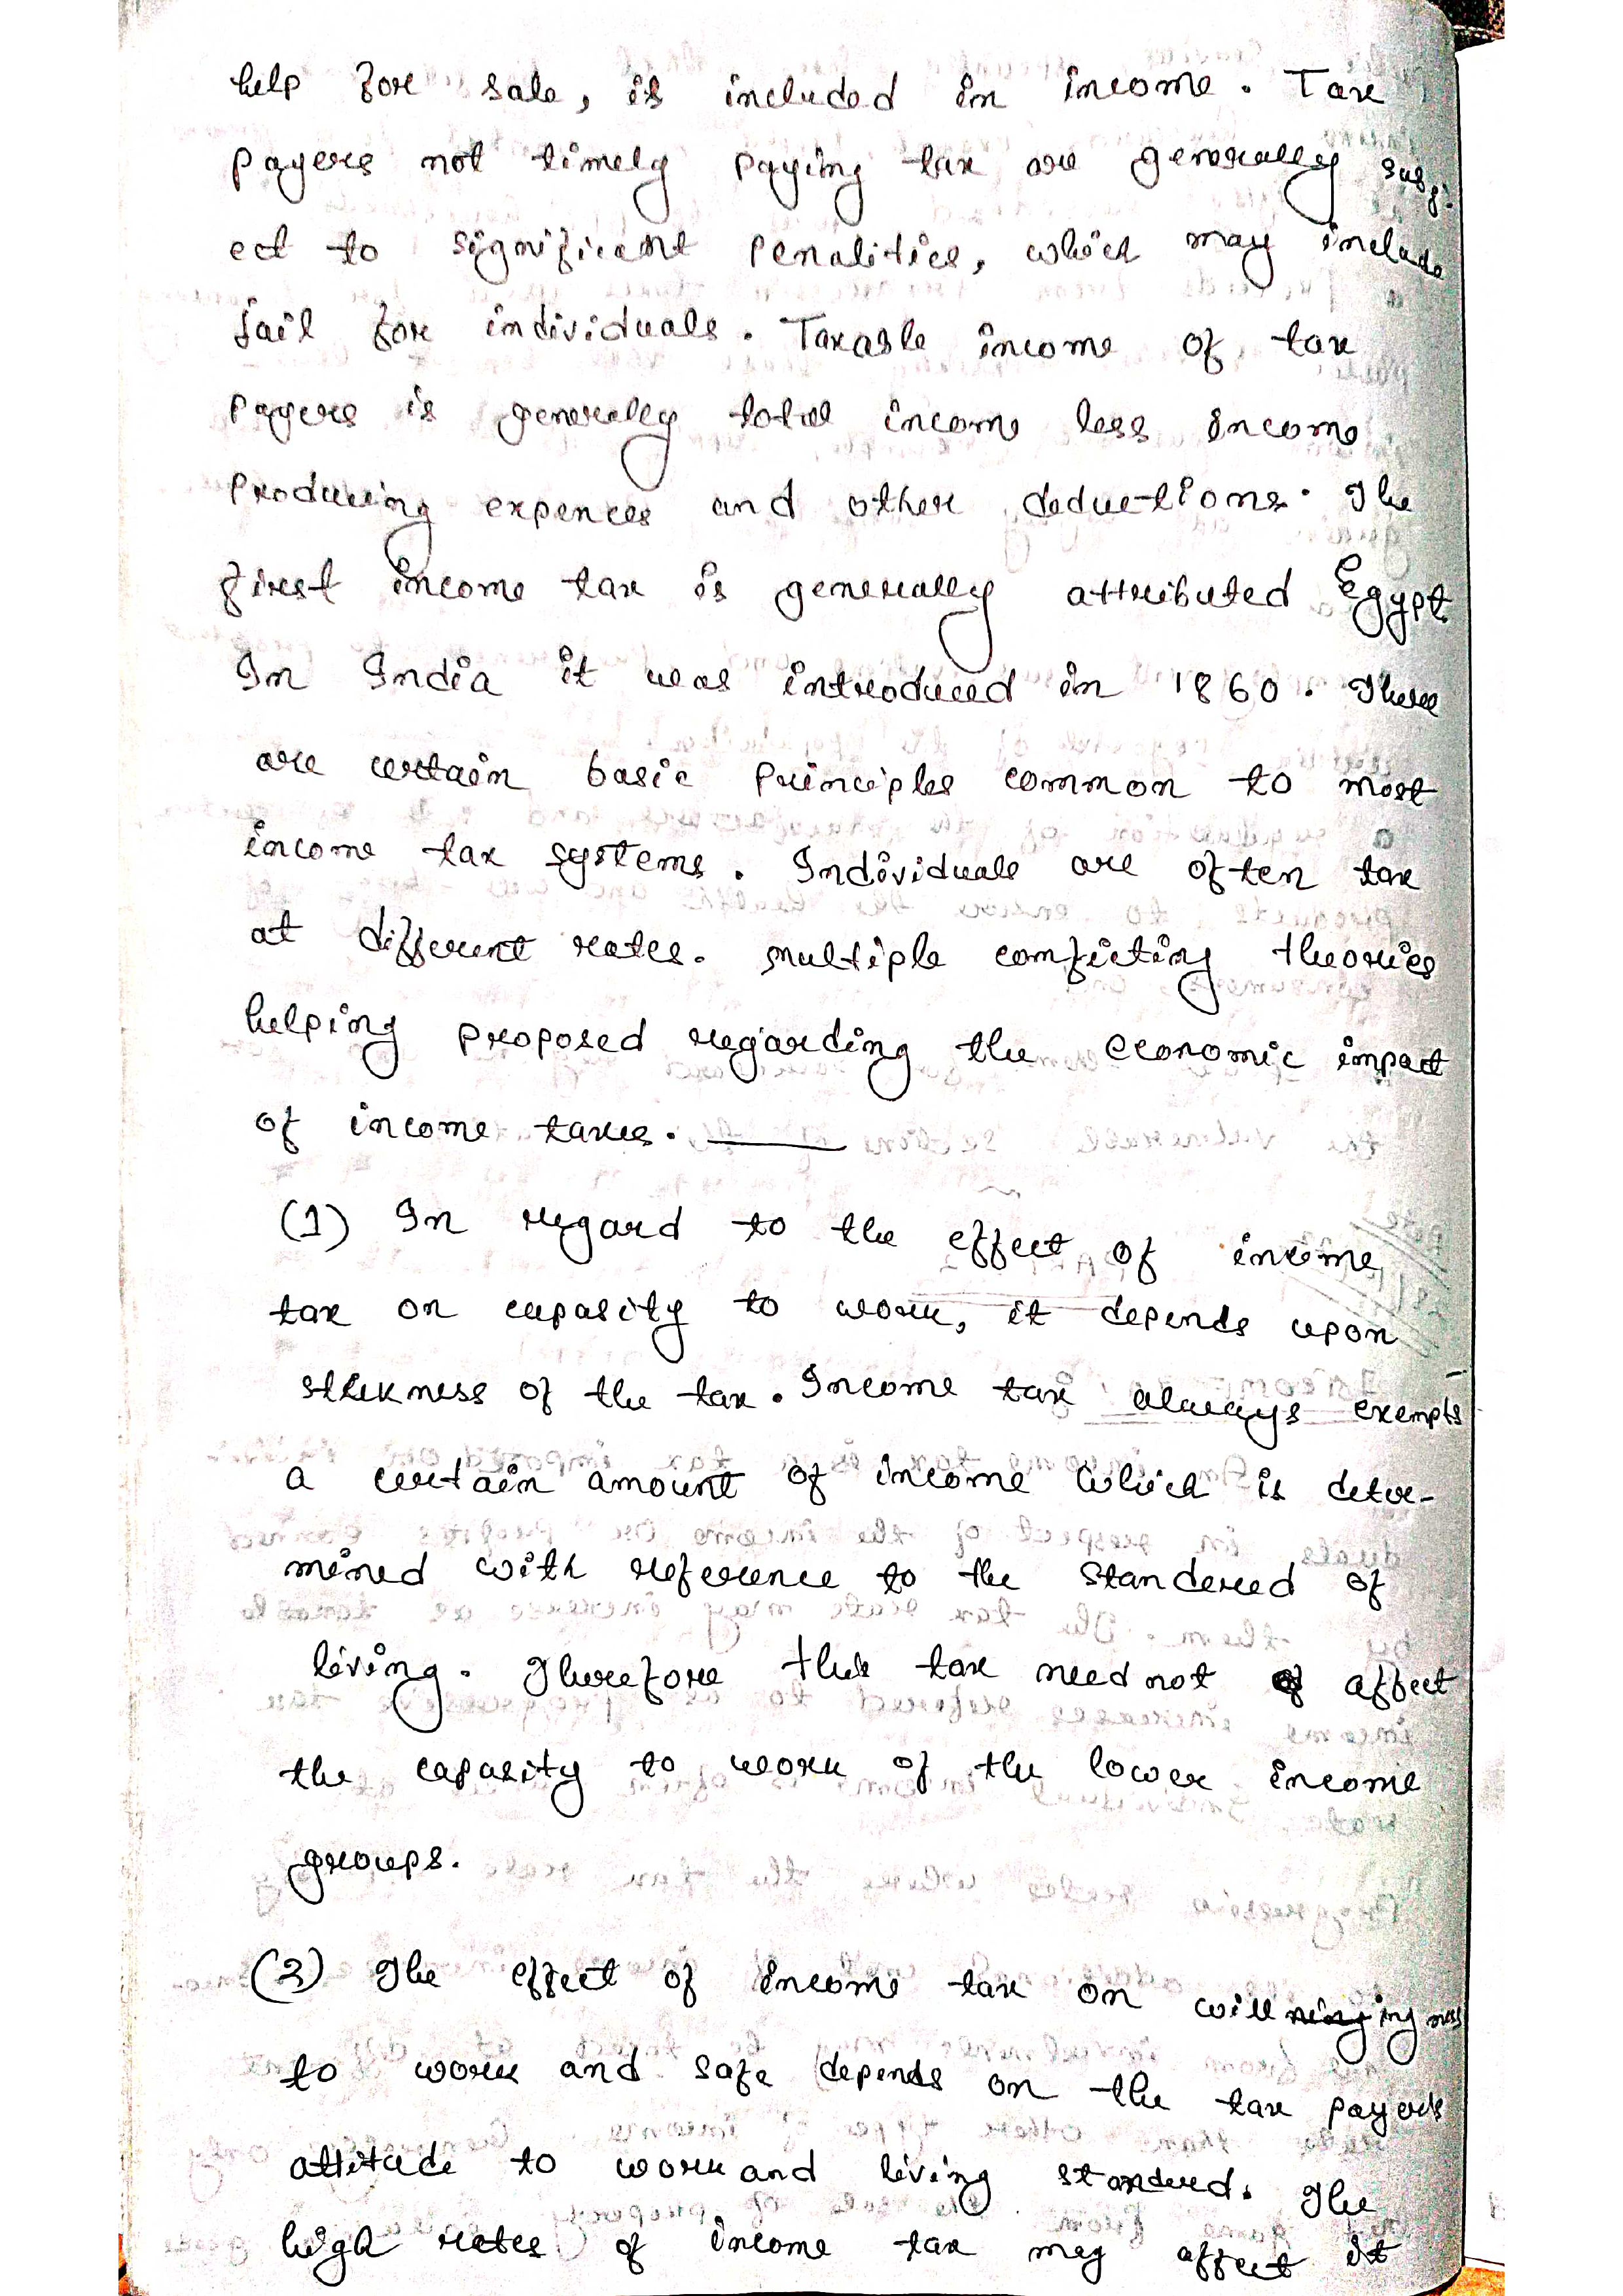 help for sale, is included in income. Tax
payers not timely paying tax are generally subj-
ect to significant penalities, which may include
jail for individuals. Taxable income of tax
payers is generally total income less income
producing expences and other deductions. The
first income tax is generally attributed Egypt
In India it was introduced in 1860. There
are certain basic principles common to most
income tax systems. Individuals are often tax
at different rates. multiple conficting theories
helping proposed regarding the economic impact
of income taxes.
(1) In regard to the effect of income
tax on capasity to work, it depends upon
of the tax. Income tax always exempts
a certain amount of income which is deter-
mined with reference to the standered of
living. Therefore this tax need not affect
the capasity to work of the lower income
groups.
(2) The effect of income tax on willingness
to work and safe depends on the tax payer's
attitude to work and living standerd. The
high rates of income tax may affect it